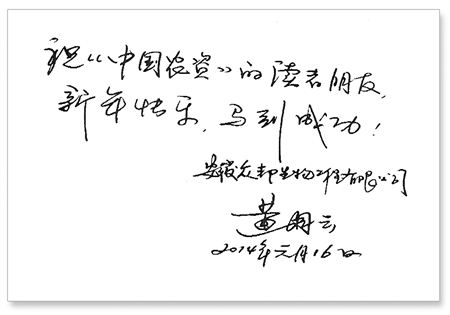 祝《中国投资》的读者朋友,
新年快乐,马到成功!
安徽众邦生物工程有限公司
云
2014年元月16日